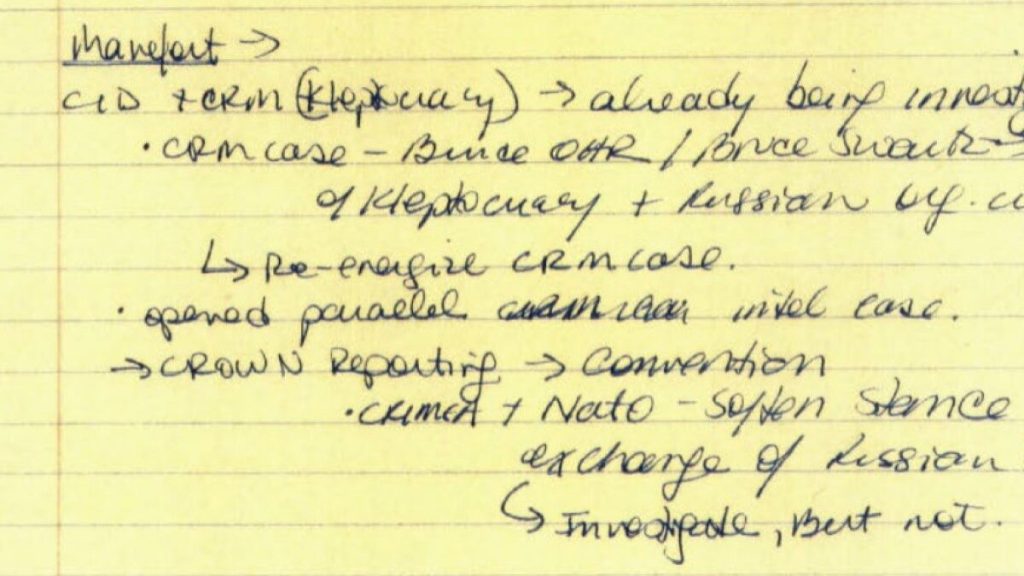 Manafort →
CID + CRM (Kleptocracy) → already being investig
· CRM case - Bruce OHR / Bruce Swartz →
of Kleptocracy + Russian Org. c
↳ Re-energize CRM case.
· opened parallel intel case.
→ CROWN Reporting → Convention
· CRIMEA + Nato - Soften stance
exchange of Russian
↳ Investigate, But not.